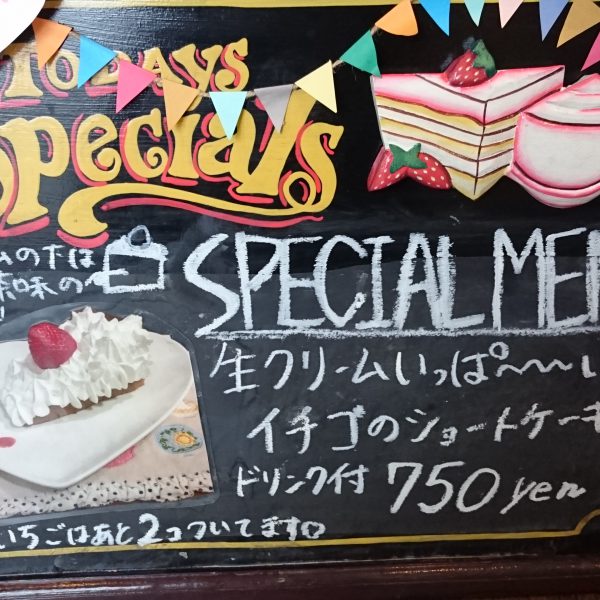 TODAYS
Specials
ムの下は
茶味の
SPECIAL MEN
生クリームいっぱ〜〜〜い
イチゴのショートケーキ
ドリンク付 750yen
いちごはあと2コついてます